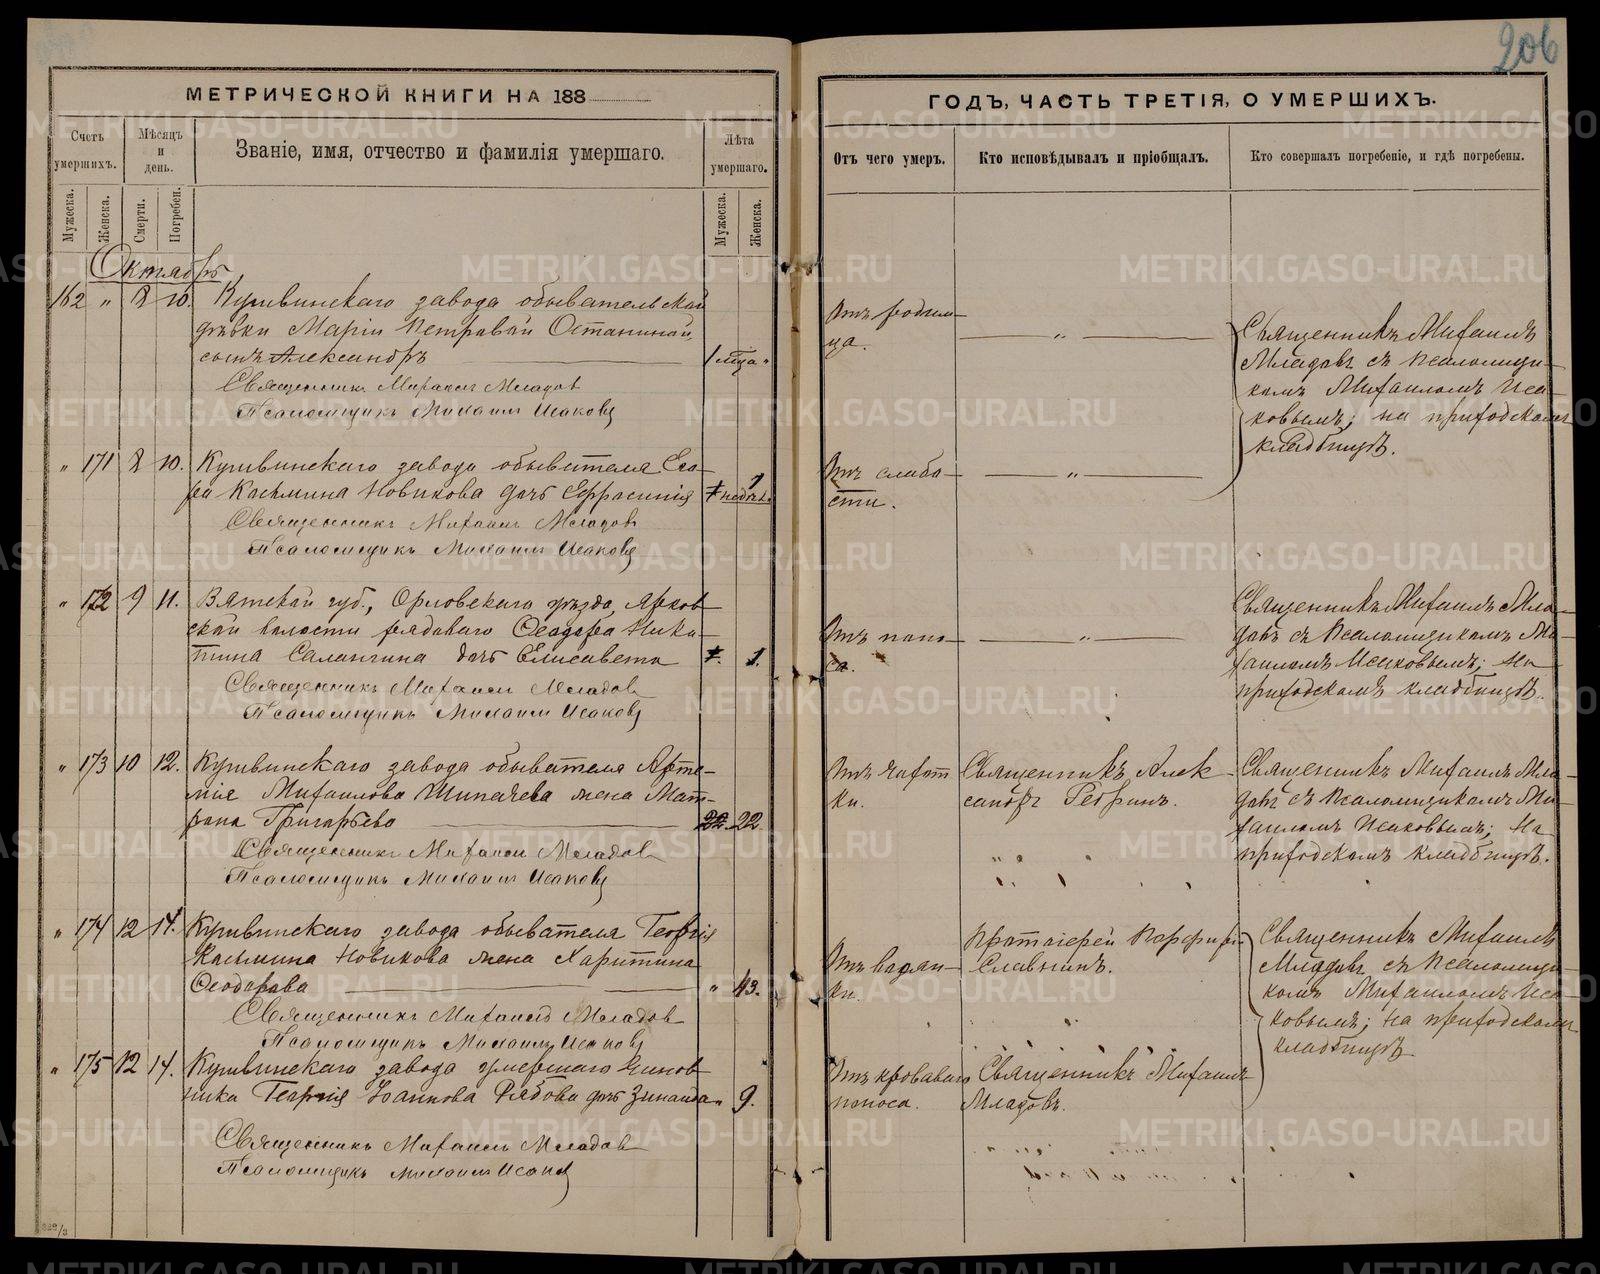 206
МЕТРИЧЕСКОЙ КНИГИ НА 188
ГОДЪ, ЧАСТЬ ТРЕТІЯ, О УМЕРШИХЪ.
Счетъ умершихъ.
Мѣсяцъ и день.
Званіе, имя, отчество и фамилія умершаго.
Лѣта умершаго.
Отъ чего умеръ.
Кто исповѣдывалъ и пріобщалъ.
Кто совершалъ погребеніе, и гдѣ погребены.
Мужеска.
Женска.
Смерти.
Погребен.
Мужеска.
Женска.
Октябрь
162 " 8 10. Кушвинскаго завода обывательской
дѣвки Маріи Петровой Останиной,
сынъ Александръ 1 мца "
Священникъ Михаилъ Младов
Псаломщикъ Михаилъ Исаковъ
Отъ родим-
ца.
"
Священникъ Михаилъ
Младовъ съ псаломщи-
комъ Михаиломъ Иса-
ковымъ; на приходскомъ
кладбищѣ.
" 171 8 10. Кушвинскаго завода обывателя Его-
ра Касьмина Новикова дочь Ефросинія 1 недѣль.
Священникъ Михаилъ Младовъ
Псаломщикъ Михаилъ Исаковъ
Отъ слабо-
сти.
"
" 172 9 11. Вятской губ., Орловскаго уѣзда,
ской волости рядоваго Ѳеодора Ники-
тина дочь Елисавета 1.
Священникъ Михаилъ Младовъ
Псаломщикъ Михаилъ Исаковъ
Отъ поно-
са.
"
Священникъ Михаилъ Мла-
довъ съ псаломщикомъ Ми-
хаиломъ Исаковымъ; на
приходскомъ кладбищѣ.
" 173 10 12. Кушвинскаго завода обывателя Арте-
мія Михаилова Шипачева жена Мат-
рона Григорьева 22. 22.
Священникъ Михаилъ Младовъ
Псаломщикъ Михаилъ Исаковъ
Отъ чахот
ки.
Священникъ Алек-
сандръ
Священникъ Михаилъ Мла-
довъ съ псаломщикомъ Ми-
хаиломъ Исаковымъ; на
приходскомъ кладбищѣ.
" 174 12 14. Кушвинскаго завода обывателя Георгія
Касьмина Новикова жена Харитина
Ѳеодорова " 43.
Священникъ Михаилъ Младов
Псаломщикъ Михаилъ Исаковъ
Отъ водян-
ки.
Протоіерей Порфирій
Славнинъ.
Священникъ Михаилъ
Младовъ съ псаломщи-
комъ Михаиломъ Иса-
ковымъ; на приходскомъ
кладбищѣ.
" 175 12 14. Кушвинскаго завода умершаго чинов-
ника Георгія Іоаннова Рябова дочь Зинаида " 9.
Священникъ Михаилъ Младов
Псаломщикъ Михаилъ Исаковъ
Отъ кроваваго
поноса.
Священникъ Михаилъ
Младовъ.
METRIKI.GASO-URAL.RU